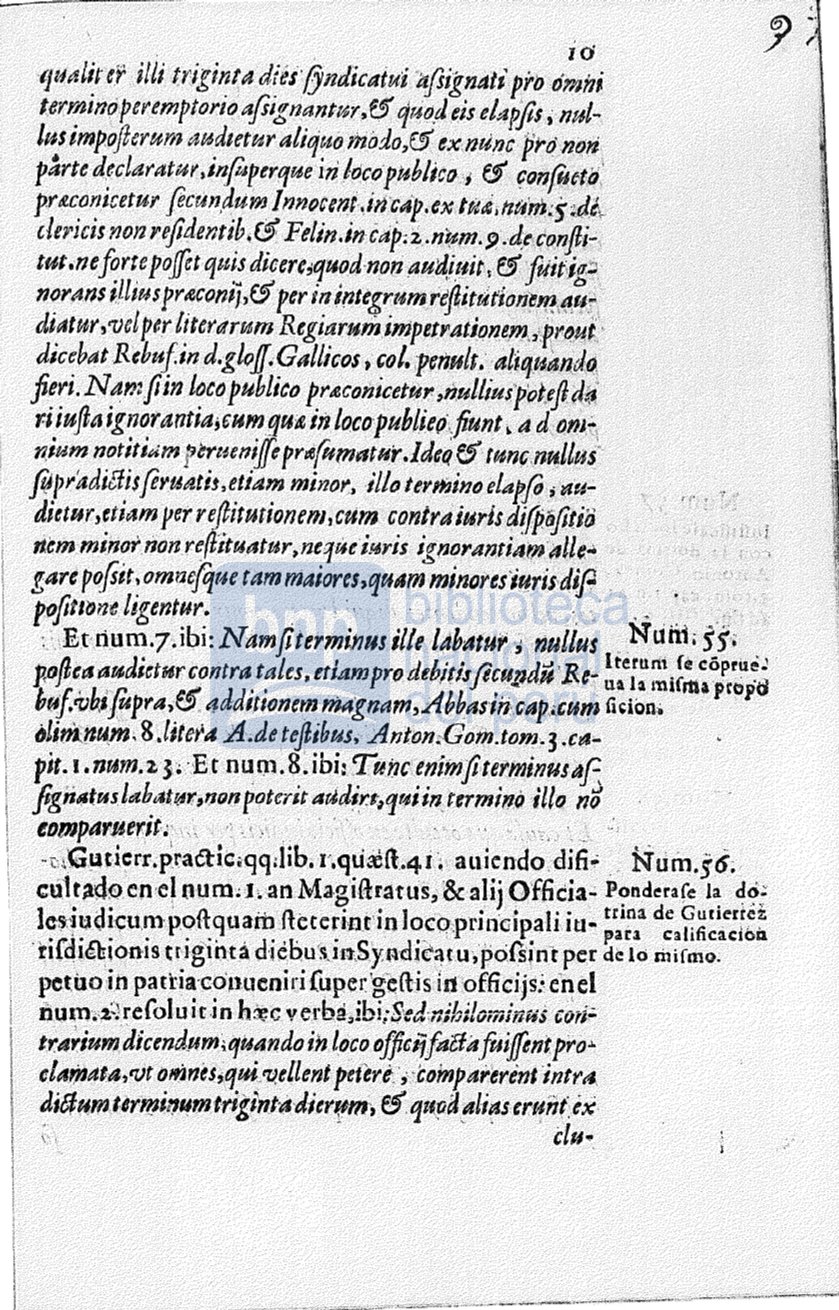 9
10
qualiter illi triginta dies ſyndicatui aſsignati pro omni
termino peremptorio aſsignantur, & quod eis elapſis, nul-
lus impoſterum audietur aliquo modo, & ex nunc pro non
parte declaratur, inſuperque in loco publico, & conſueto
præconicetur ſecundum Innocent. in cap. ex tuæ, num. 5. de
clericis non reſidentib. & Felin. in cap. 2. num. 9. de conſti-
tut. ne forte poſſet quis dicere, quod non audiuit, & fuit ig-
norans illius præconij, & per in integrum reſtitutionem au-
diatur, vel per literarum Regiarum impetrationem, prout
dicebat Rebuf. in d. gloſſ. Gallicos, col. penult. aliquando
fieri. Nam ſi in loco publico præconicetur, nullius poteſt da
ri iuſta ignorantia, cum quæ in loco publico fiunt, ad om-
nium notitiam perueniſſe præſumatur. Ideo & tunc nullus
ſupradictis ſeruatis, etiam minor, illo termino elapſo, au-
dietur, etiam per reſtitutionem, cum contra iuris diſpoſitio
nem minor non reſtituatur, neque iuris ignorantiam alle-
gare poſsit, omneſque tam maiores, quam minores iuris diſ-
poſitione ligentur.
Et num. 7. ibi: Nam ſi terminus ille labatur, nullus
poſtea audietur contra tales, etiam pro debitis ſecundũ Re-
buf. vbi ſupra, & additionem magnam, Abbas in cap. cum
olim num. 8. litera A. de teſtibus, Anton. Gom. tom. 3. ca-
pit. 1. num. 23. Et num. 8. ibi: Tunc enim ſi terminus aſ-
ſignatus labatur, non poterit audiri, qui in termino illo nõ
comparuerit.
Num. 55.
Iterum ſe cõprue-
ua la miſma propo
ſicion.
Gutierr. practic. qq. lib. 1. quæſt. 41. auiendo difi-
cultado en el num. 1. an Magiſtratus, & alij Officia-
les iudicum poſtquam ſteterint in loco principali iu-
riſdictionis triginta diebus in Syndicatu, poſsint per
petuo in patria conueniri ſuper geſtis in officijs: en el
num. 2. reſoluit in hæc verba, ibi: Sed nihilominus con-
trarium dicendum, quando in loco officij facta fuiſſent pro-
clamata, vt omnes, qui vellent petere, comparerent intra
dictum terminum triginta dierum, & quod alias erunt ex
clu-
Num. 56.
Ponderaſe la do-
trina de Gutierrez
para calificacion
de lo miſmo.
bnp biblioteca
nacional
del perú